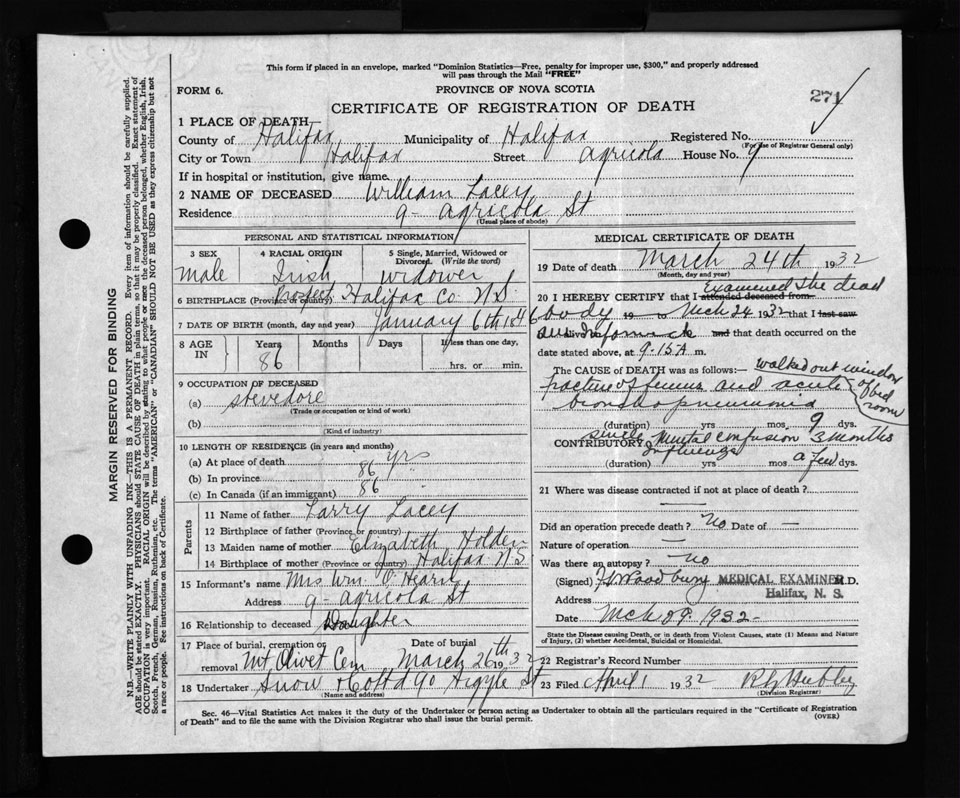 This form if placed in an envelope, marked "Dominion Statistics—Free, penalty for improper use, $300," and properly addressed
will pass through the Mail "FREE"
FORM 6.
PROVINCE OF NOVA SCOTIA
271
CERTIFICATE OF REGISTRATION OF DEATH
1 PLACE OF DEATH
County of Halifax Municipality of Halifax Registered No.
(For Use of Registrar General only)
City or Town Halifax Street Agricola House No. 9
If in hospital or institution, give name
2 NAME OF DECEASED William Lacey
Residence 9- Agricola St
(Usual place of abode)
PERSONAL AND STATISTICAL INFORMATION
3 SEX 4 RACIAL ORIGIN 5 Single, Married, Widowed or Divorced. (Write the word)
Male Irish widower
6 BIRTHPLACE (Province or country) Prospect Halifax Co N S
7 DATE OF BIRTH (month, day and year) January 6th 1846
8 AGE IN Years Months Days If less than one day,
86 hrs. or min.
9 OCCUPATION OF DECEASED
(a) stevedore
(Trade or occupation or kind of work)
(b)
(Kind of industry)
10 LENGTH OF RESIDENCE (in years and months)
(a) At place of death 86 yrs
(b) In province 86 "
(c) In Canada (if an immigrant)
Parents
11 Name of father Larry Lacey
12 Birthplace of father (Province or country)
13 Maiden name of mother Elizabeth Holden
14 Birthplace of mother (Province or country) Halifax N S
15 Informant's name Mrs Wm. O'Hearn
Address 9- Agricola St
16 Relationship to deceased Daughter
17 Place of burial, cremation or removal Mt Olivet Cem Date of burial March 26th 1932
18 Undertaker Snow & Co Ltd 90 Argyle St
(Name and address)
MEDICAL CERTIFICATE OF DEATH
19 Date of death March 24th 1932
(Month, day and year)
Examined the dead
20 I HEREBY CERTIFY that I attended deceased from
body 19 to Mch 24 1932 that I last saw
alive and that death occurred on
date stated above, at 9-15 A m.
The CAUSE OF DEATH was as follows: walked out window of bed room
fracture of femur and acute
bronchopneumonia
(duration) yrs mos 9 dys.
CONTRIBUTORY senile Mental confusion 3 months
Influenza
(duration) yrs mos a few dys.
21 Where was disease contracted if not at place of death? —
Did an operation precede death? no Date of —
Nature of operation —
Was there an autopsy? no
(Signed) Woodbury MEDICAL EXAMINER M.D.
Halifax, N. S.
Address
Date Mch 29. 1932
State the Disease causing Death, or in death from Violent Causes, state (1) Means and Nature
of Injury, (2) whether Accidental, Suicidal or Homicidal.
22 Registrar's Record Number
23 Filed April 1 1932
(Division Registrar)
Sec. 46—Vital Statistics Act makes it the duty of the Undertaker or person acting as Undertaker to obtain all the particulars required in the "Certificate of Registration
of Death" and to file the same with the Division Registrar who shall issue the burial permit. (OVER)
MARGIN RESERVED FOR BINDING
N.B.—WRITE PLAINLY WITH UNFADING INK—THIS IS A PERMANENT RECORD. Every item of information should be carefully supplied.
AGE should be stated EXACTLY. PHYSICIANS should STATE CAUSE OF DEATH in plain terms, so that it may be properly classified. Exact statement of
OCCUPATION is very important. RACIAL ORIGIN will be described by stating to what people or race the deceased person belonged, whether English, Irish,
Scotch, French, German, Russian, Ruthenian, etc. The terms "AMERICAN" or "CANADIAN" SHOULD NOT BE USED as they express citizenship but not
a race or people. See instructions on back of Certificate.